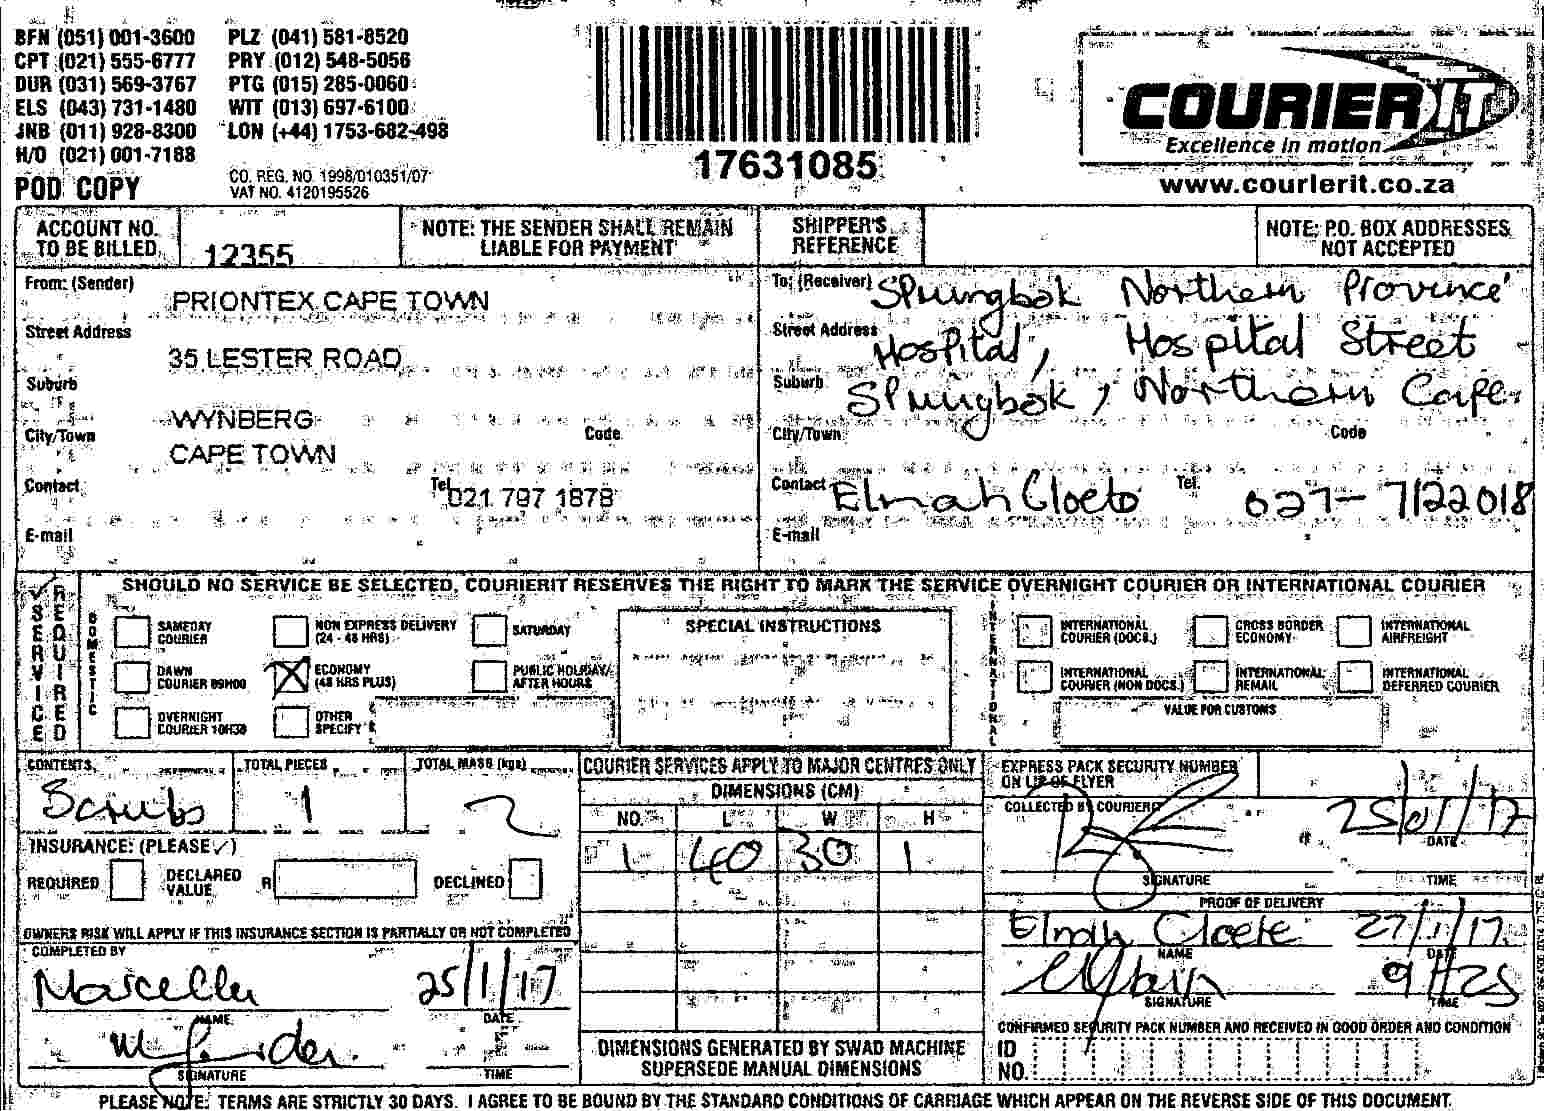 BFN (051) 001-3600 PLZ (041) 581-8520
CPT (021) 555-6777 PRY (012) 548-5056
DUR (031) 569-3767 PTG (015) 285-0060
ELS (043) 731-1480 WIT (013) 697-6100
JNB (011) 928-8300 LON (+44) 1753-682-498
H/O (021) 001-7188
POD COPY
CO. REG. NO. 1998/010351/07
VAT NO. 4120195526
17631085
COURIER IT
Excellence in motion
www.courierit.co.za
ACCOUNT NO. TO BE BILLED 12355
NOTE: THE SENDER SHALL REMAIN LIABLE FOR PAYMENT
SHIPPER'S REFERENCE
NOTE: P.O. BOX ADDRESSES NOT ACCEPTED
From: (Sender) PRIONTEX CAPE TOWN
Street Address 35 LESTER ROAD
Suburb WYNBERG
City/Town CAPE TOWN Code
Contact Tel. 021 797 1878
E-mail
To: (Receiver) Springbok Northern Province
Street Address Hospital, Hospital Street
Suburb Springbok, Northern Cape.
City/Town Code
Contact Elnah Cloete Tel. 027-7122018
E-mail
SERVICE REQUIRED
SHOULD NO SERVICE BE SELECTED, COURIERIT RESERVES THE RIGHT TO MARK THE SERVICE OVERNIGHT COURIER OR INTERNATIONAL COURIER
DOMESTIC
SAMEDAY COURIER
NON EXPRESS DELIVERY (24 - 48 HRS)
SATURDAY
DAWN COURIER 09H00
ECONOMY (48 HRS PLUS)
PUBLIC HOLIDAY/ AFTER HOURS
OVERNIGHT COURIER 10H30
OTHER SPECIFY
SPECIAL INSTRUCTIONS
INTERNATIONAL
INTERNATIONAL COURIER (DOCS.)
CROSS BORDER ECONOMY
INTERNATIONAL AIRFREIGHT
INTERNATIONAL COURIER (NON DOCS.)
INTERNATIONAL REMAIL
INTERNATIONAL DEFERRED COURIER
VALUE FOR CUSTOMS
CONTENTS Scrubs
TOTAL PIECES 1
TOTAL MASS (kgs) 2
INSURANCE: (PLEASE ✓)
REQUIRED DECLARED VALUE R DECLINED
OWNERS RISK WILL APPLY IF THIS INSURANCE SECTION IS PARTIALLY OR NOT COMPLETED
COMPLETED BY
Marcelle 25/1/17
NAME DATE
SIGNATURE TIME
COURIER SERVICES APPLY TO MAJOR CENTRES ONLY
DIMENSIONS (CM)
NO. L W H
1 40 30 1
DIMENSIONS GENERATED BY SWAD MACHINE
SUPERSEDE MANUAL DIMENSIONS
EXPRESS PACK SECURITY NUMBER
ON LIP OF FLYER
COLLECTED BY COURIER
25/01/17
DATE
SIGNATURE TIME
PROOF OF DELIVERY
Elnah Cloete 27/1/17
NAME DATE
9H25
SIGNATURE TIME
CONFIRMED SECURITY PACK NUMBER AND RECEIVED IN GOOD ORDER AND CONDITION
ID NO.
PLEASE NOTE: TERMS ARE STRICTLY 30 DAYS. I AGREE TO BE BOUND BY THE STANDARD CONDITIONS OF CARRIAGE WHICH APPEAR ON THE REVERSE SIDE OF THIS DOCUMENT.